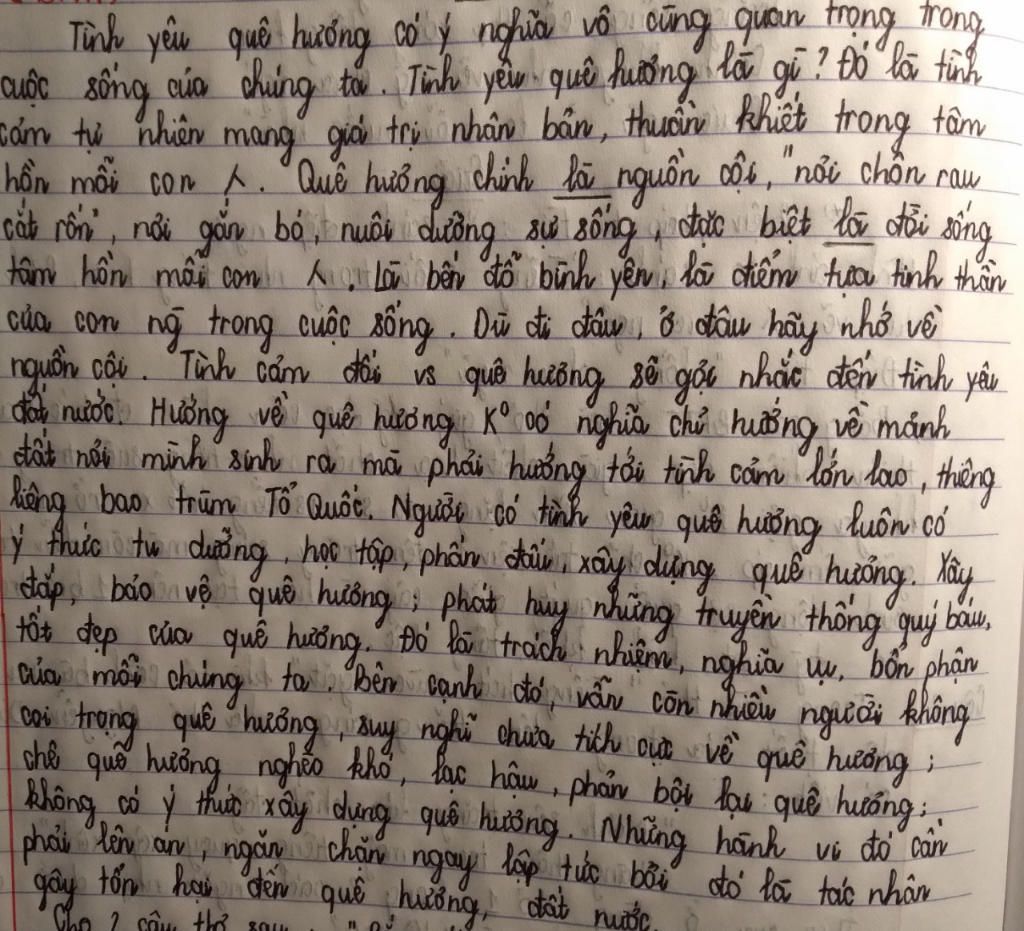 Tình yêu quê hương có ý nghĩa vô cùng quan trọng trong
cuộc sống của chúng ta. Tình yêu quê hương là gì? Đó là tình
cảm tự nhiên mang giá trị nhân bản, thuần khiết trong tâm
hồn mỗi con 人. Quê hương chính là nguồn cội, "nơi chôn rau
cắt rốn", nơi gắn bó, nuôi dưỡng sự sống, đặc biệt là đời sống
tâm hồn mỗi con 人. Là bến đỗ bình yên, là điểm tựa tinh thần
của con ng̃ trong cuộc sống. Dù đi đâu, ở đâu hãy nhớ về
nguồn cội. Tình cảm đối vs quê hương sẽ gợi nhắc đến tình yêu
đất nước. Hướng về quê hương K⁰ có nghĩa chỉ hướng về mảnh
đất nơi mình sinh ra mà phải hướng tới tình cảm lớn lao, thiêng
liêng bao trùm Tổ Quốc. Người có tình yêu quê hương luôn có
ý thức tu dưỡng, học tập, phấn đấu, xây dựng quê hương. Xây
đắp, bảo vệ quê hương; phát huy những truyền thống quý báu,
tốt đẹp của quê hương. Đó là trách nhiệm, nghĩa vụ, bổn phận
của mỗi chúng ta. Bên cạnh đó, vẫn còn nhiều người không
coi trọng quê hương, suy nghĩ chưa tích cực về quê hương;
chê quê hương nghèo khó, lạc hậu, phản bội lại quê hương;
không có ý thức xây dựng quê hương. Những hành vi đó cần
phải lên án, ngăn chặn ngay lập tức bởi đó là tác nhân
gây tổn hại đến quê hương, đất nước.
Cho 2 câu thơ sau